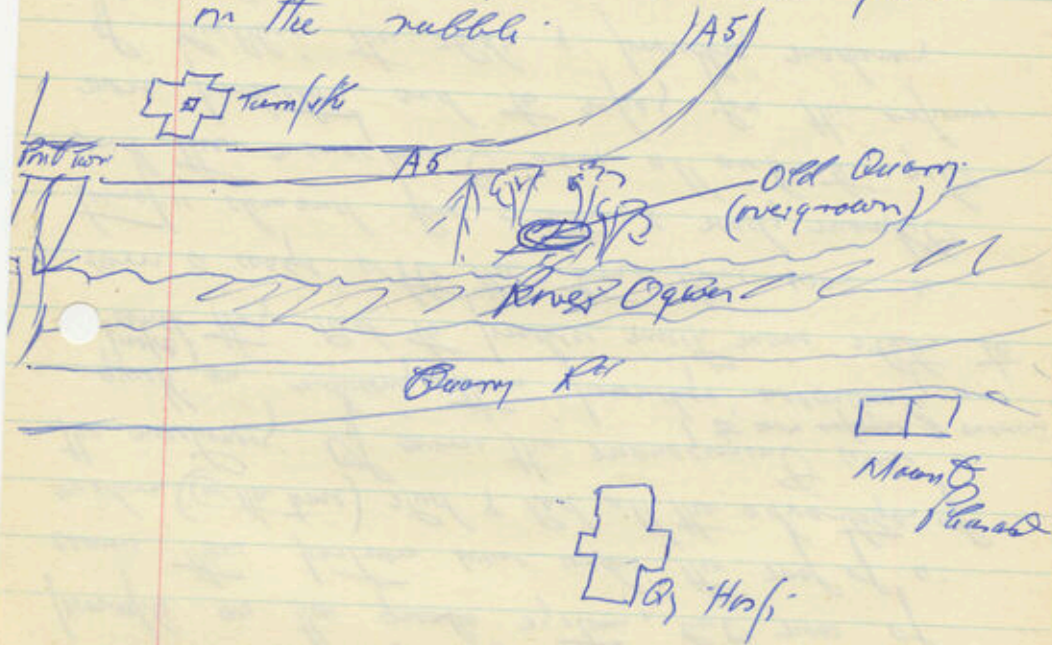 on the rubble.
A5
Turnpike
Pont Twr
A5
Old Quarry
(overgrown)
River Ogwen
Quarry Rd
Mount
Pleasant
Qy Hosp